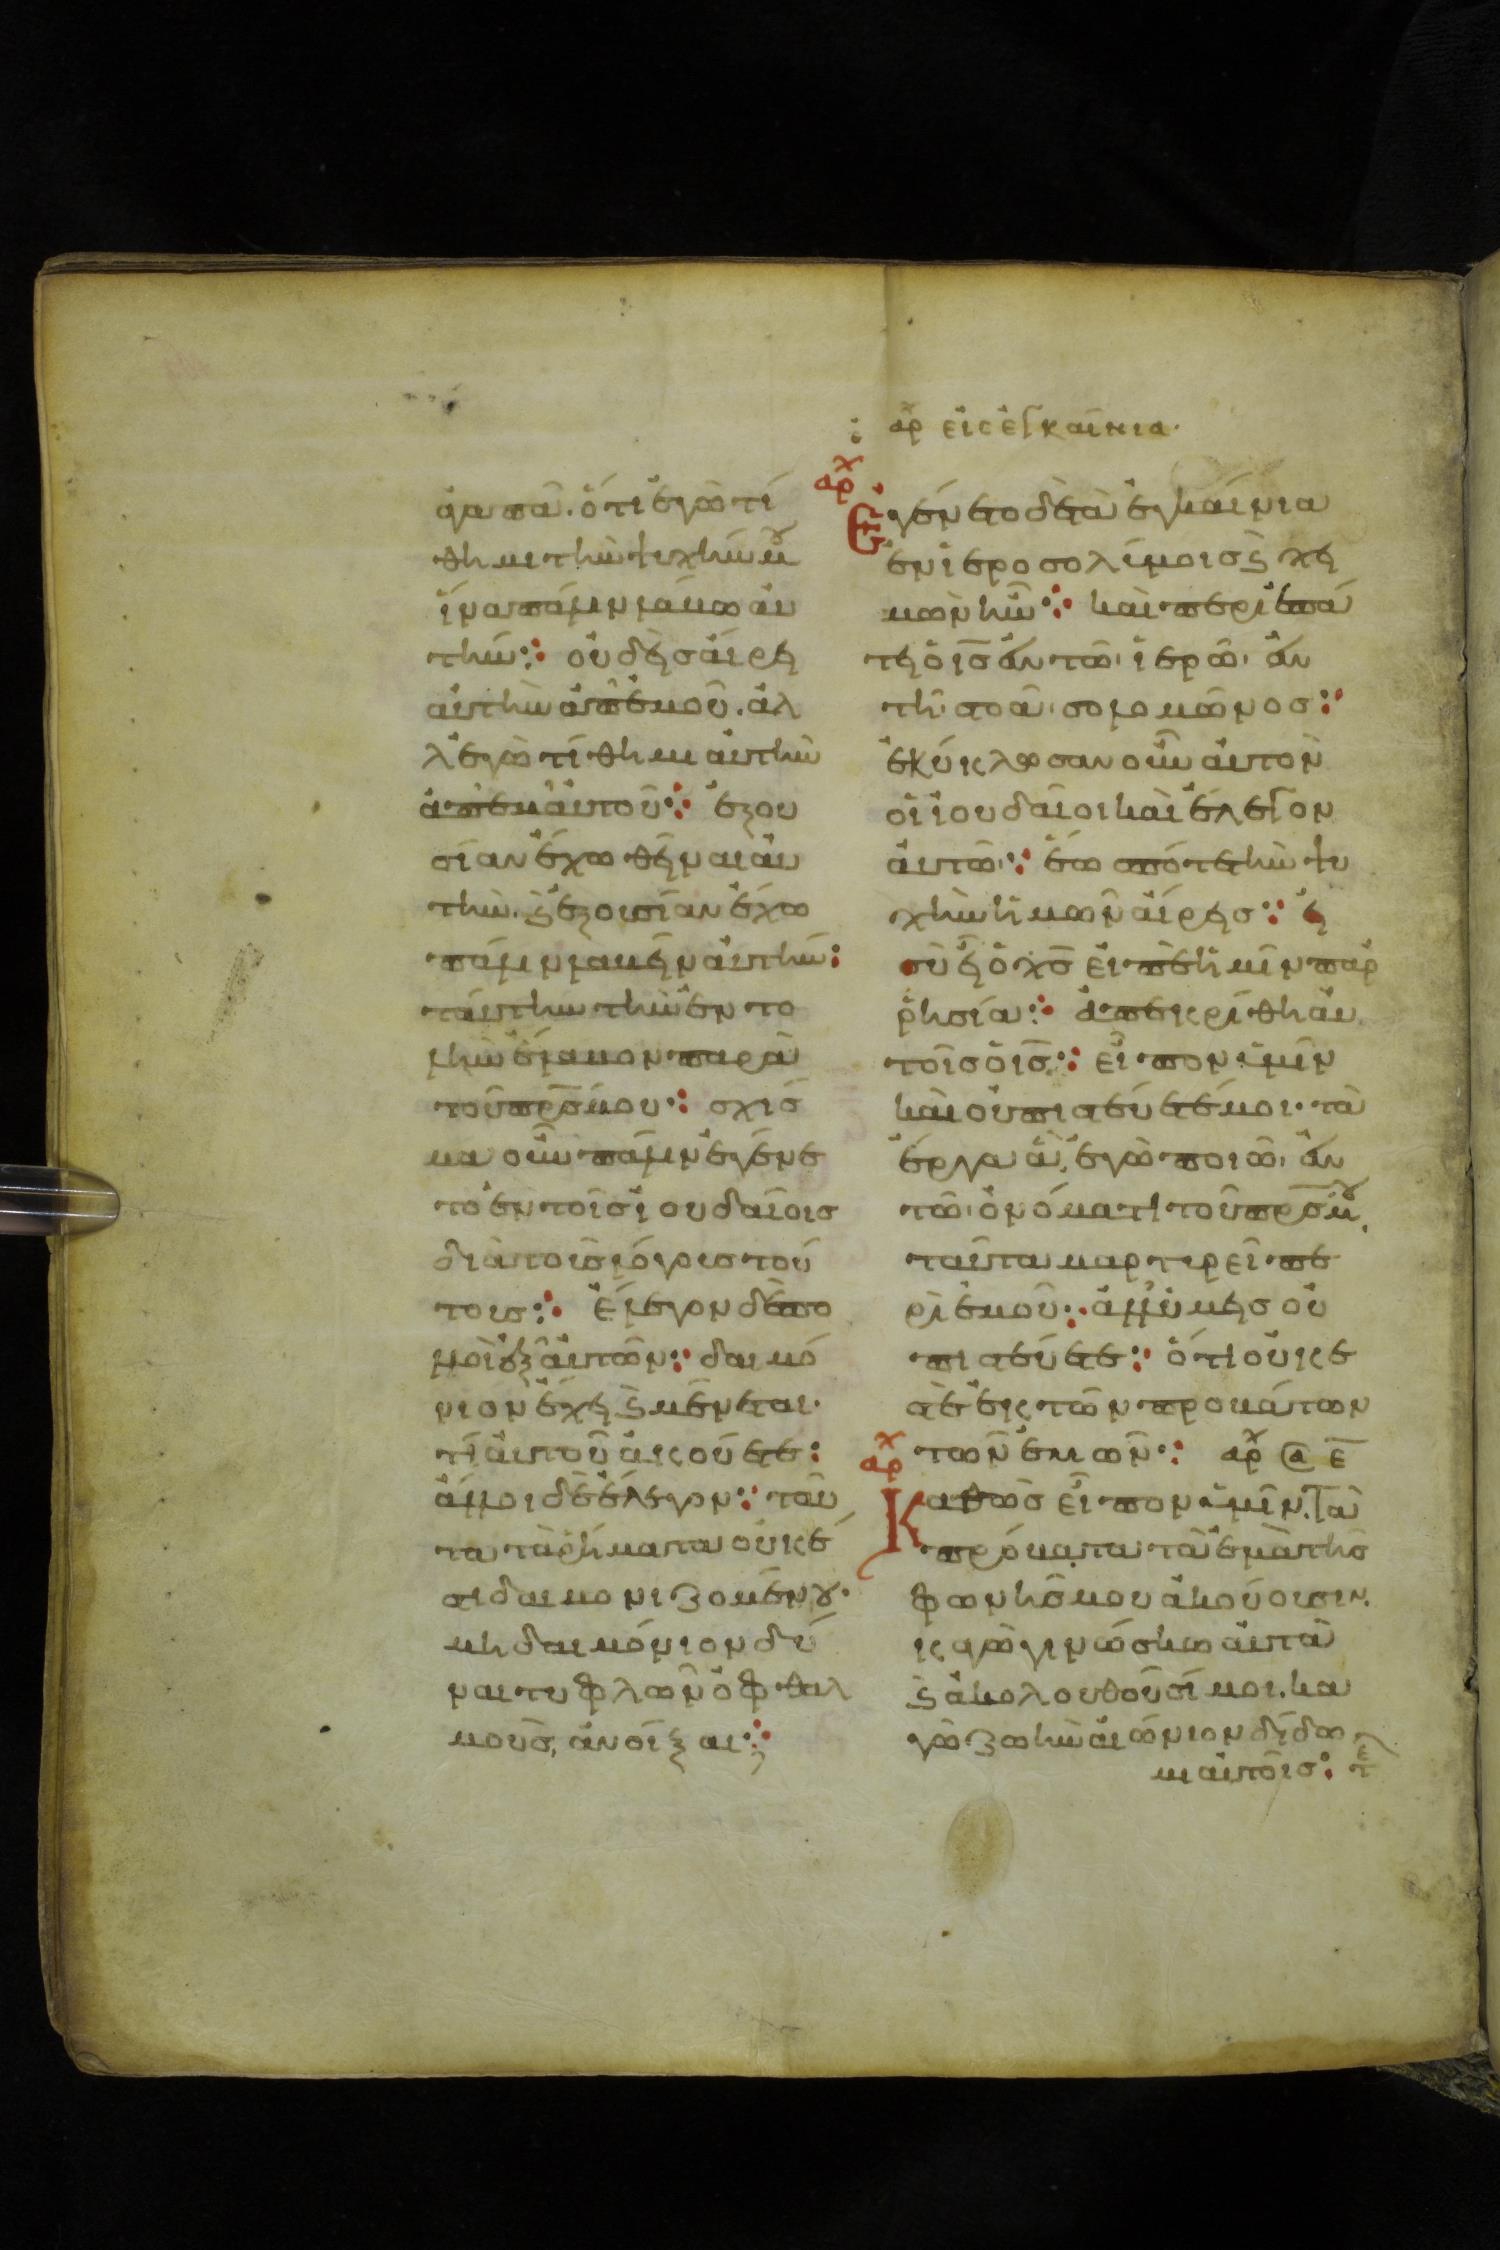 ἀγαπᾶ. ὅτι ἐγὼ τί
θημι τὴν ψυχήν μου
ἵνα πάλιν λάβω αὐ
τήν: οὐδεὶς αἴρει
αὐτὴν ἀπ' ἐμοῦ. ἀλ
λ' ἐγὼ τίθημι αὐτὴν
ἀπ' ἐμαυτοῦ: ἐξου
σίαν ἔχω θεῖναι αὐ
τὴν. καὶ ἐξουσίαν ἔχω
πάλιν λαβεῖν αὐτήν:
ταύτην τὴν ἐντο
λὴν ἔλαβον παρὰ
τοῦ πρς μου: σχίσ
μα οὖν πάλιν ἐγένε
το ἐν τοῖς ἰουδαίοις
διὰ τοὺς λόγους τού
τους: ἔλεγον δὲ πο
λοὶ ἐξ αὐτῶν: δαιμό
νιον ἔχει καὶ μένεται.
τί αὐτοῦ ἀκούετε:
ἄλλοι δὲ ἔλεγον: ταῦ
τα τὰ ῥήματα οὐκ ἔ
στι δαιμονιζομένου.
μὴ δαιμόνιον δύ
ναι τυφλῶν ὀφθαλ
μοὺς, ἀνοίξαι:
αρχ εἰς ἐγκαίνια.
αρχ
Ἐγένετο δὲ τὰ ἐγκαίνια
ἐν ἱεροσολύμοις καὶ χει
μὼν ἦν: καὶ περιεπά
τει ὁ ις ἐν τῶ ἱερῶ. ἐν
τῆ στοᾶ σολομῶνος:
ἐκύκλωσαν οὖν αὐτὸν
οἱ ἰουδαῖοι καὶ ἔλεγον
αὐτῶ: ἕως πότε τὴν ψυ
χὴν ἡμῶν αἴρεις: εἰ
σὺ εἶ ὁ χς εἰπὲ ἡμῖν παρ
ρησία: ἀπεκρίθη αὐ
τοῖς ὁ ις: εἶπον ὑμῖν
καὶ οὐ πιστεύετέ μοι. τὰ
ἔργα ἃ ἐγὼ ποιῶ. ἐν
τῶ ὀνόματι τοῦ πρς μου,
ταῦτα μαρτυρεῖ πε
ρὶ ἐμοῦ: ἀλλ' ὑμεῖς οὐ
πιστεύετε: ὅτι οὐκ ἐ
στὲ ἐκ τῶν προβάτων
τῶν ἐμῶν: αρχ
αρχ
Καθὼς εἶπον ὑμῖν. Τὰ
πρόβατα τὰ ἐμὰ τῆς
φωνῆς μου ἀκούουσιν.
κἀγὼ γινώσκω αὐτὰ
καὶ ἀκολουθοῦσί μοι. κα
γὼ ζωὴν αἰώνιον δίδω
μι αὐτοῖς: